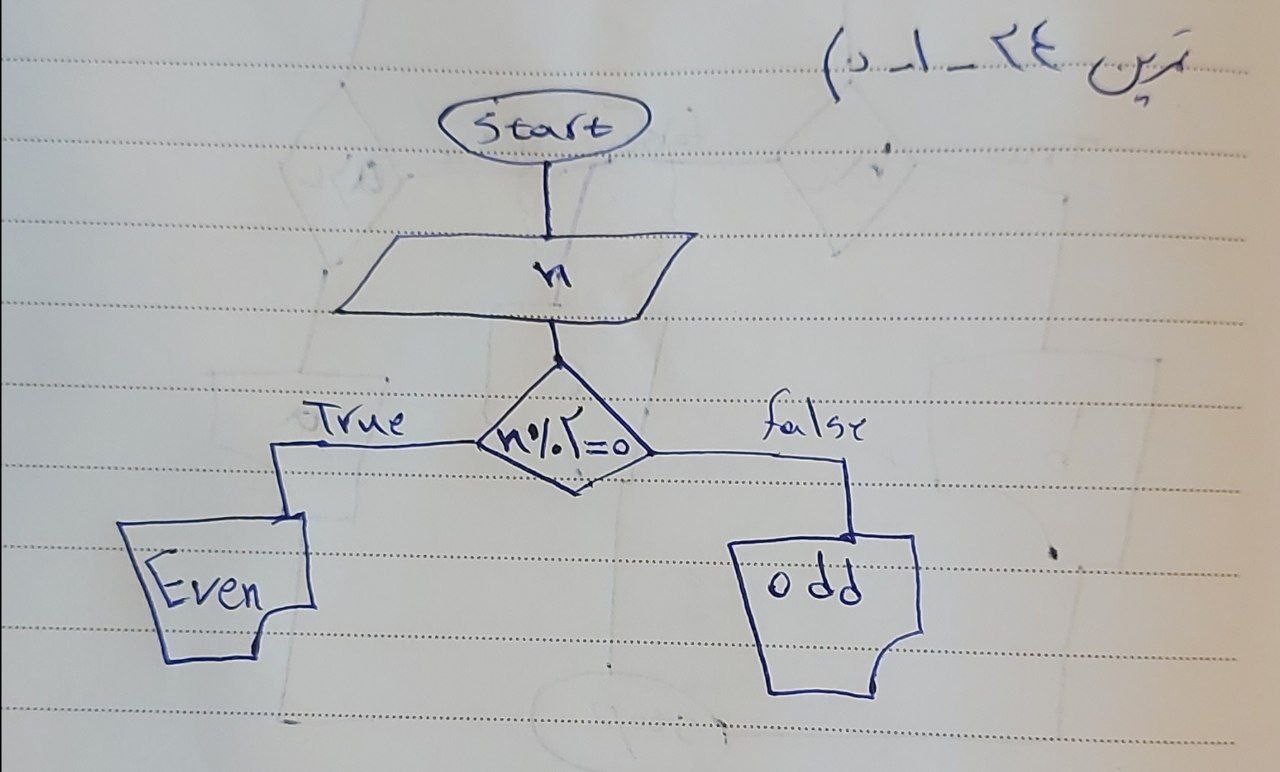 تمرین ۲٤ - ۱ - د)
Start
n
n%۲=0
True
false
Even
odd